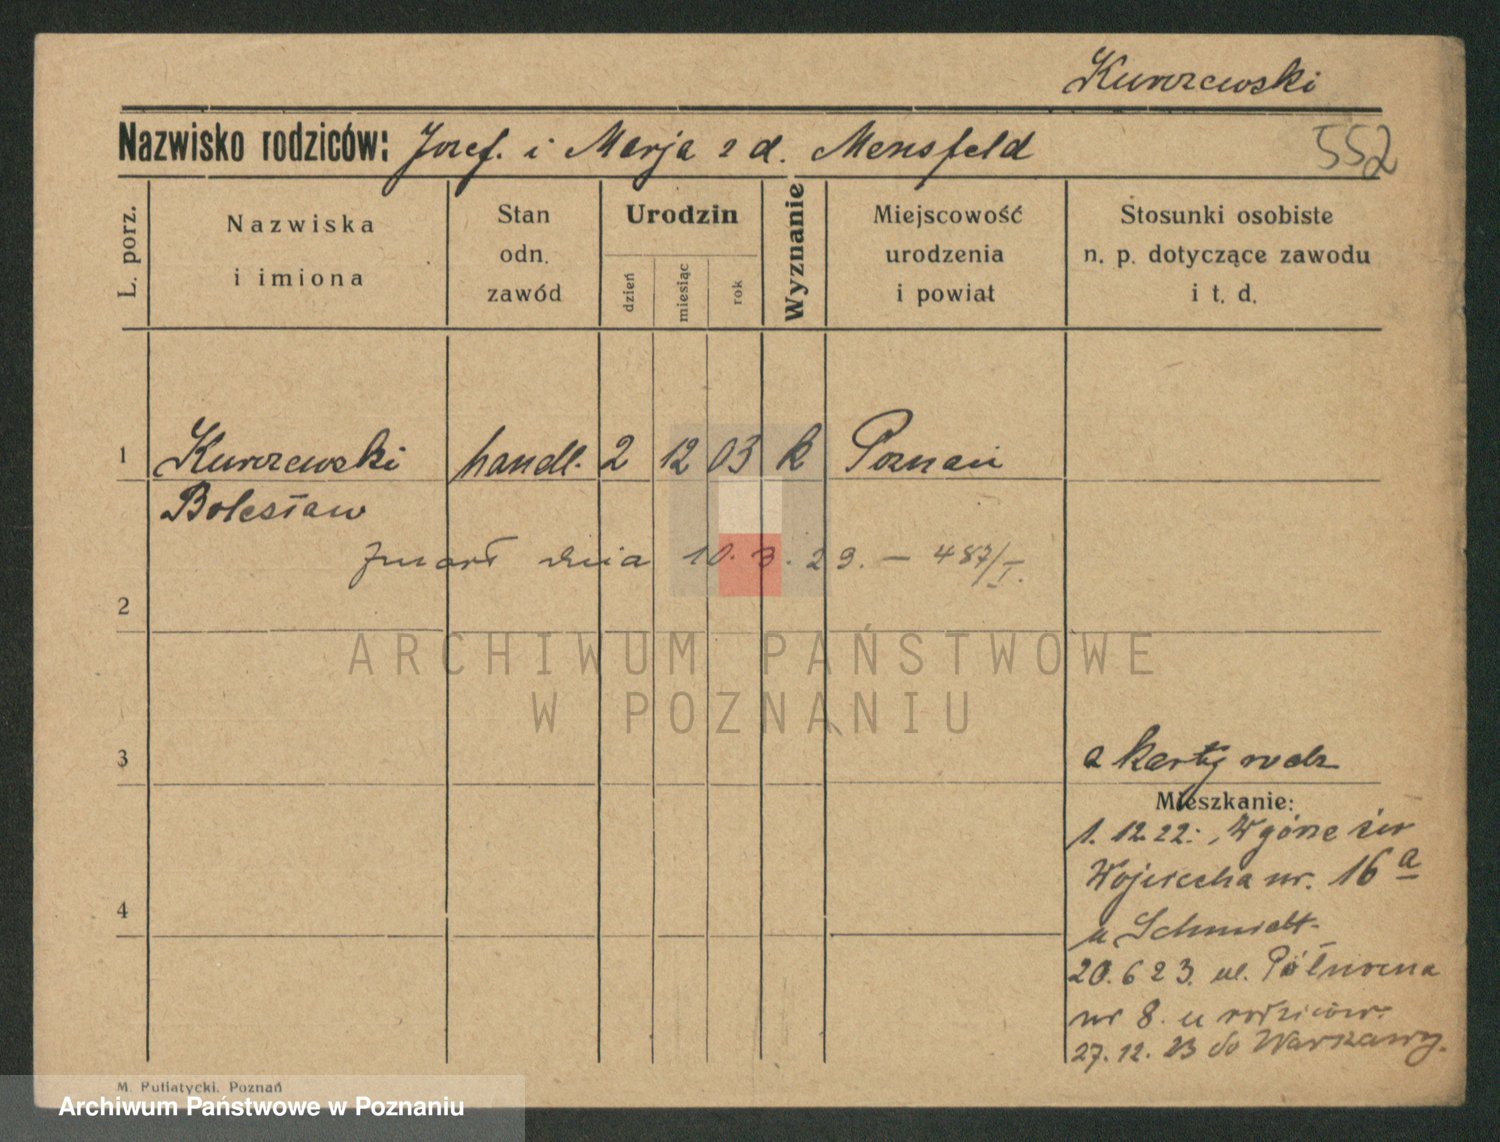 Kurczewski
Nazwisko rodziców: Józef. i Marja z d. Mensfeld
552
L. porz.
Nazwiska
i imiona
Stan
odn.
zawód
Urodzin
dzień
miesiąc
rok
Wyznanie
Miejscowość
urodzenia
i powiat
Stosunki osobiste
n. p. dotyczące zawodu
i t. d.
1 Kurczewski handl. 2 12 03 k Poznań
Bolesław
zmarł dnia 10.3.29. — 487/I.
2
ARCHIWUM PAŃSTWOWE
W POZNANIU
3
z karty rodz
Mieszkanie:
1. 12.22: Wgórze św
Wojciecha nr. 16 a
4
u Schmidt.
20. 6 23. ul. Północna
nr 8. u rodziców.
27. 12. 23 do Warszawy.
M. Putiatycki, Poznań
Archiwum Państwowe w Poznaniu